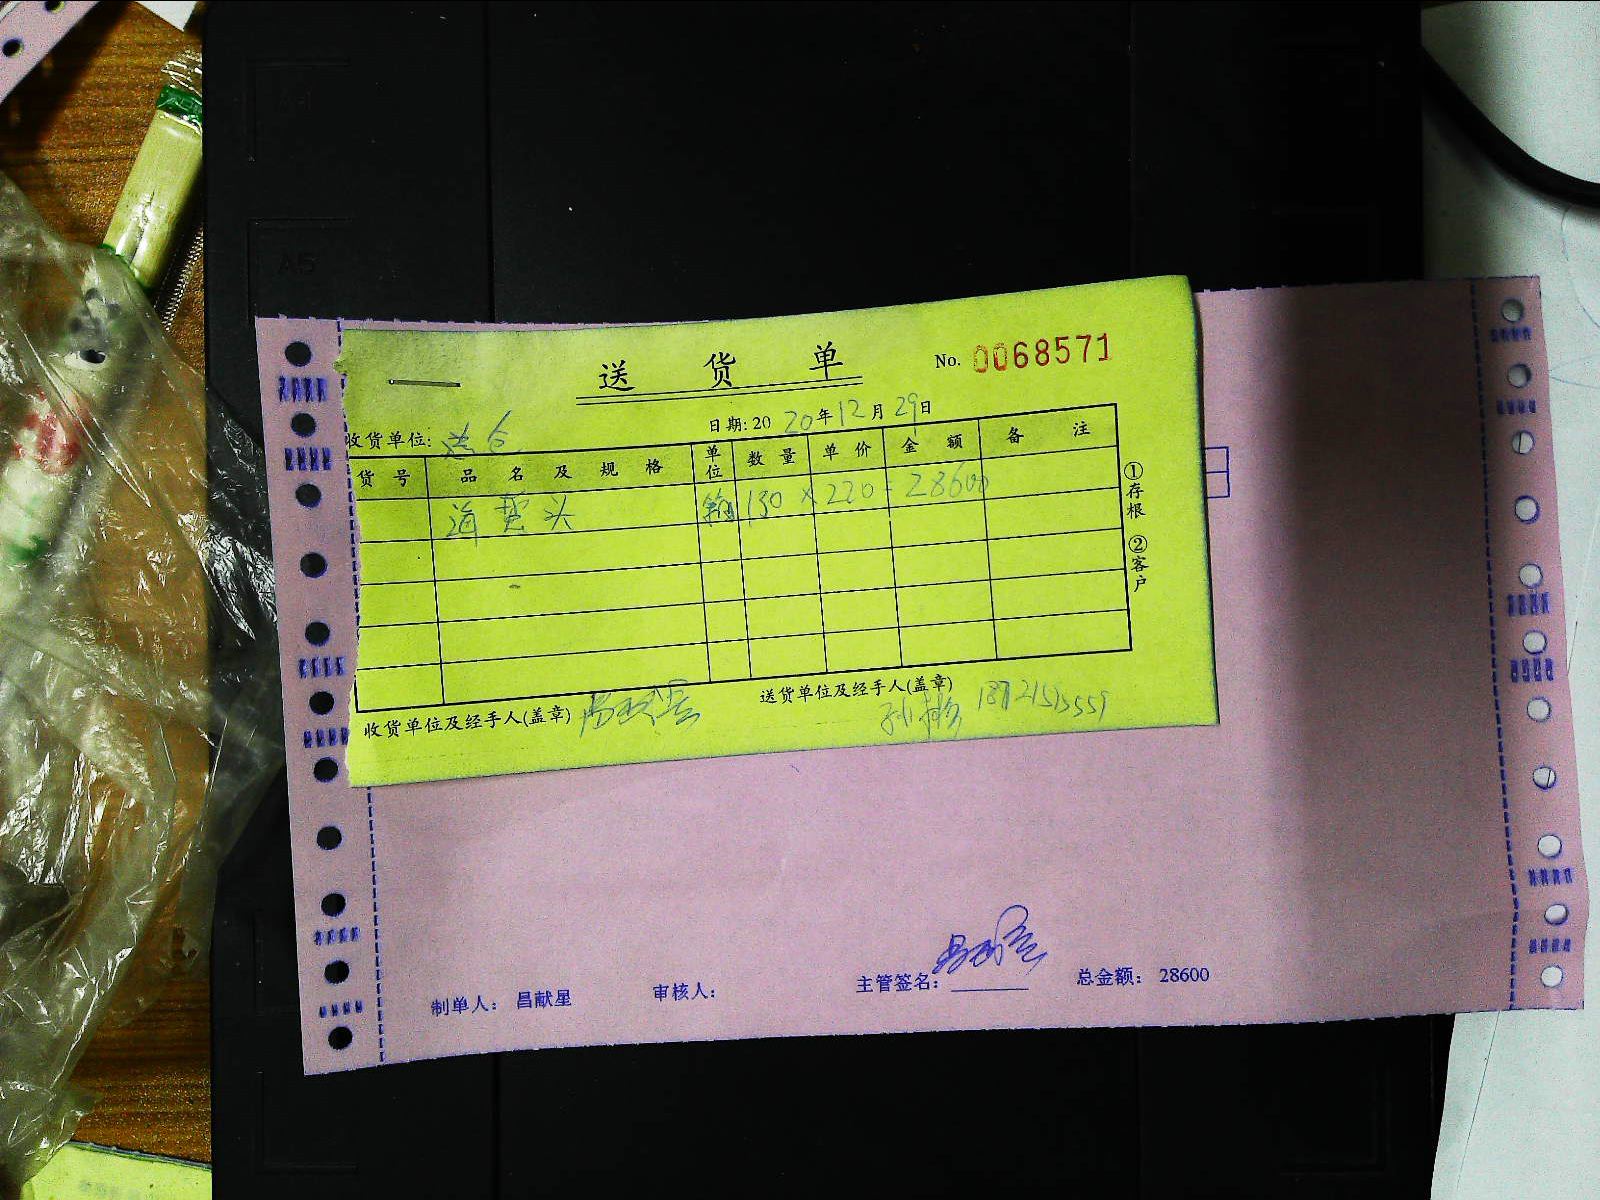 A4
A5
送货单 No. 0068571
日期: 2020年12月29日
收货单位:
货号 品名及规格 单位 数量 单价 金额 备注
海蜇头 箱 130 × 220 = 28600
①存根 ②客户
收货单位及经手人(盖章) 昌献星 送货单位及经手人(盖章)
孙彬
制单人: 昌献星 审核人: 主管签名: 昌献星 总金额: 28600